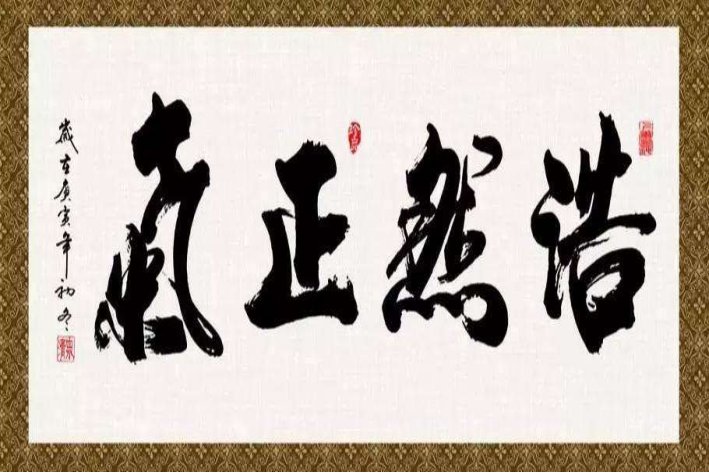 浩然正氣
歲在庚寅年初冬